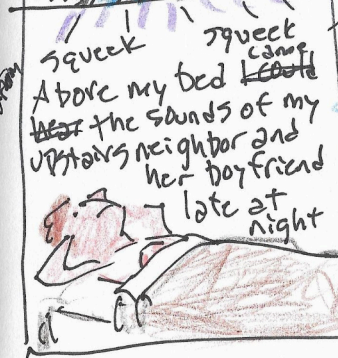 squeek squeek
Above my bed I could came
hear the sounds of my
upstairs neighbor and
her boyfriend
late at
night